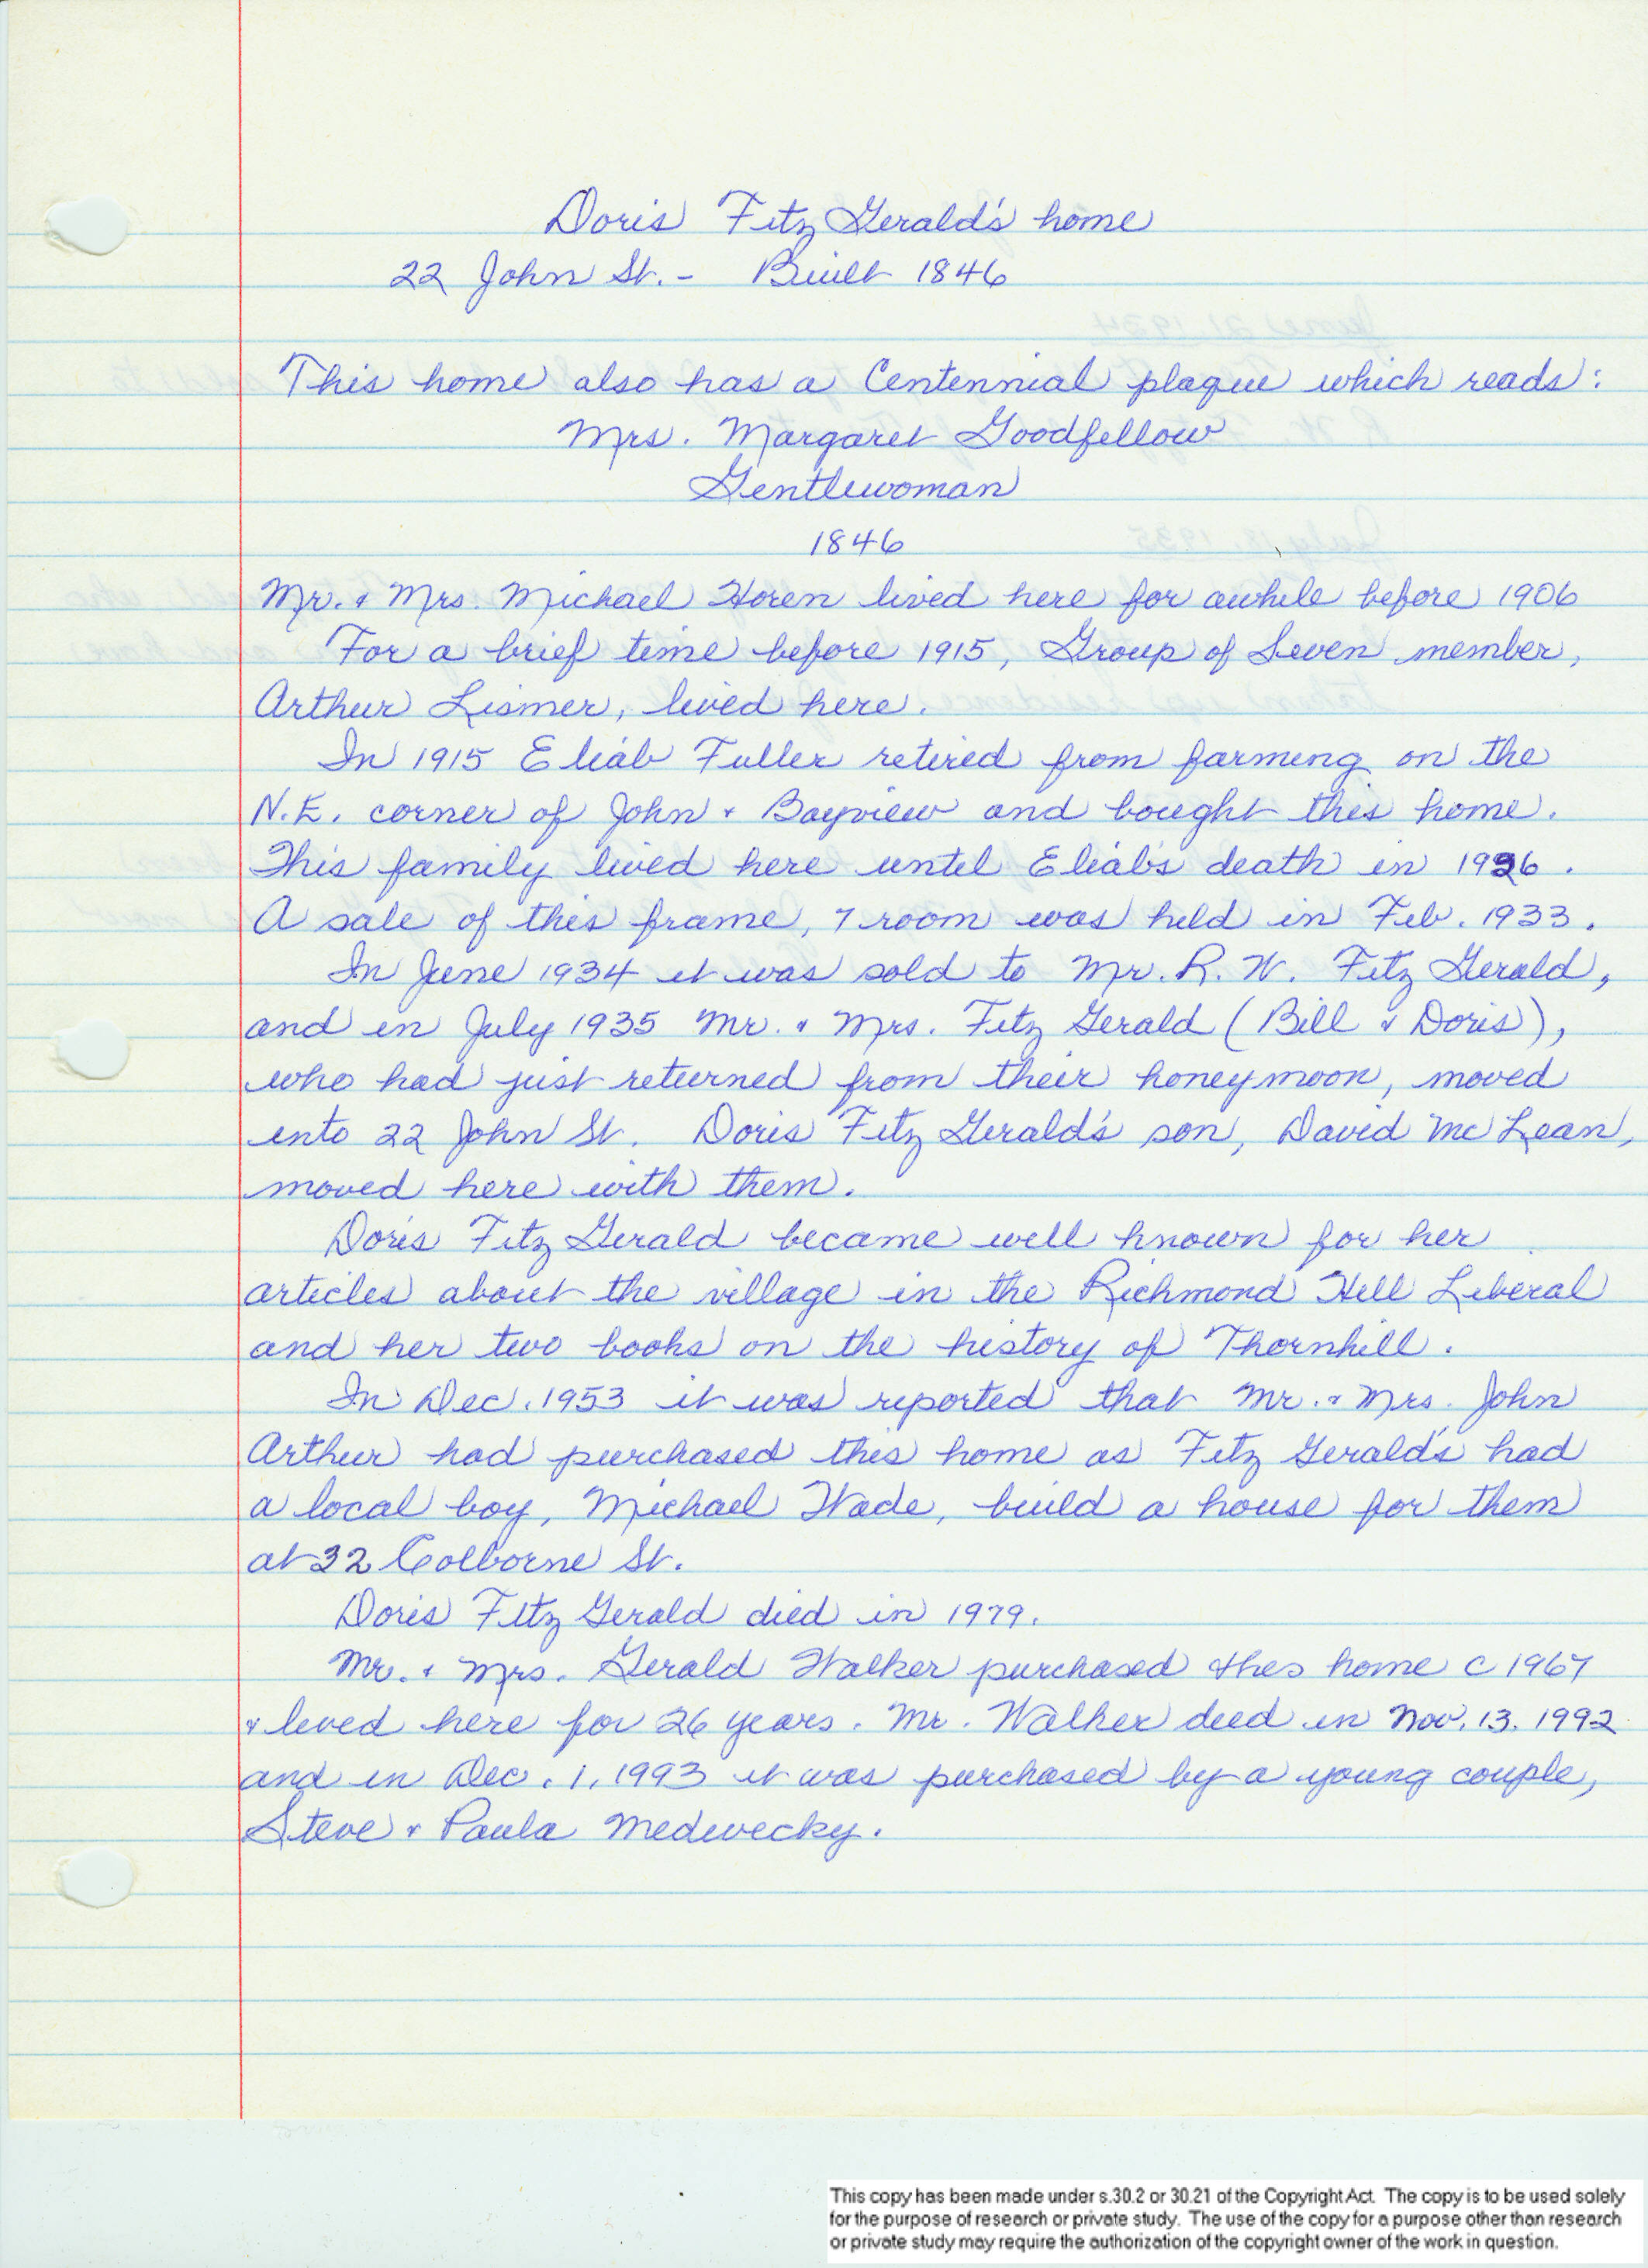 Doris Fitz Gerald's home
22 John St. - Built 1846
This home also has a Centennial plaque which reads:
Mrs. Margaret Goodfellow
Gentlewoman
1846
Mr. & Mrs. Michael Horen lived here for awhile before 1906
For a brief time before 1915, Group of Seven member,
Arthur Lismer, lived here.
In 1915 Eliab Fuller retired from farming on the
N.E. corner of John & Bayview and bought this home.
This family lived here until Eliab's death in 1926.
A sale of this frame, 7 room was held in Feb. 1933.
In June 1934 it was sold to Mr. R. W. Fitz Gerald,
and in July 1935 Mr. & Mrs. Fitz Gerald (Bill & Doris),
who had just returned from their honeymoon, moved
into 22 John St. Doris Fitz Gerald's son, David Mc Lean,
moved here with them.
Doris Fitz Gerald became well known for her
articles about the village in the Richmond Hill Liberal
and her two books on the history of Thornhill.
In Dec. 1953 it was reported that Mr. & Mrs. John
Arthur had purchased this home as Fitz Gerald's had
a local boy, Michael Wade, build a house for them
at 32 Colborne St.
Doris Fitz Gerald died in 1979.
Mr. & Mrs. Gerald Walker purchased this home c 1967
& lived here for 26 years. Mr. Walker died in Nov. 13. 1992
and in Dec. 1, 1993 it was purchased by a young couple,
Steve & Paula Medwecky.
This copy has been made under s.30.2 or 30.21 of the Copyright Act. The copy is to be used solely
for the purpose of research or private study. The use of the copy for a purpose other than research
or private study may require the authorization of the copyright owner of the work in question.